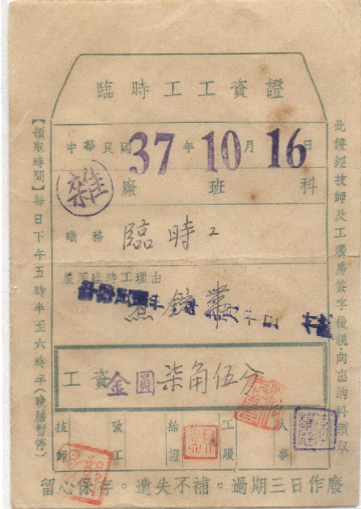 臨時工工資證
中華民國37年10月16日
雜
廠 班 科
職務 臨時工
雇用臨時工理由
工資 金圓柒角伍分
技師 致工 給證 工賬 人事
留心保存。遺失不補。過期三日作廢
此證經技師及工賬房簽字後規向出納科領取
【領取時間】每日下午五時半至六時半(晚居暫停)